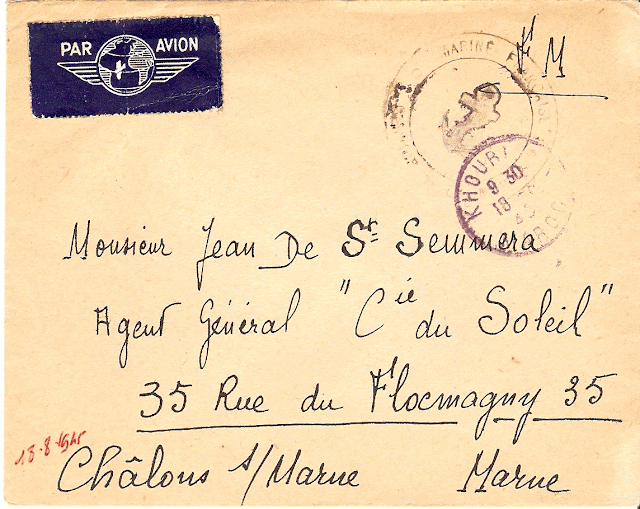 PAR AVION
MARINE FRANÇAISE
F M
KHOURI
9 30
18 - 8
45
Monsieur Jean De St Semmera
Agent Général "Cie du Soleil"
35 Rue du Flocmagny 35
18-8-1945
Châlons s/Marne Marne